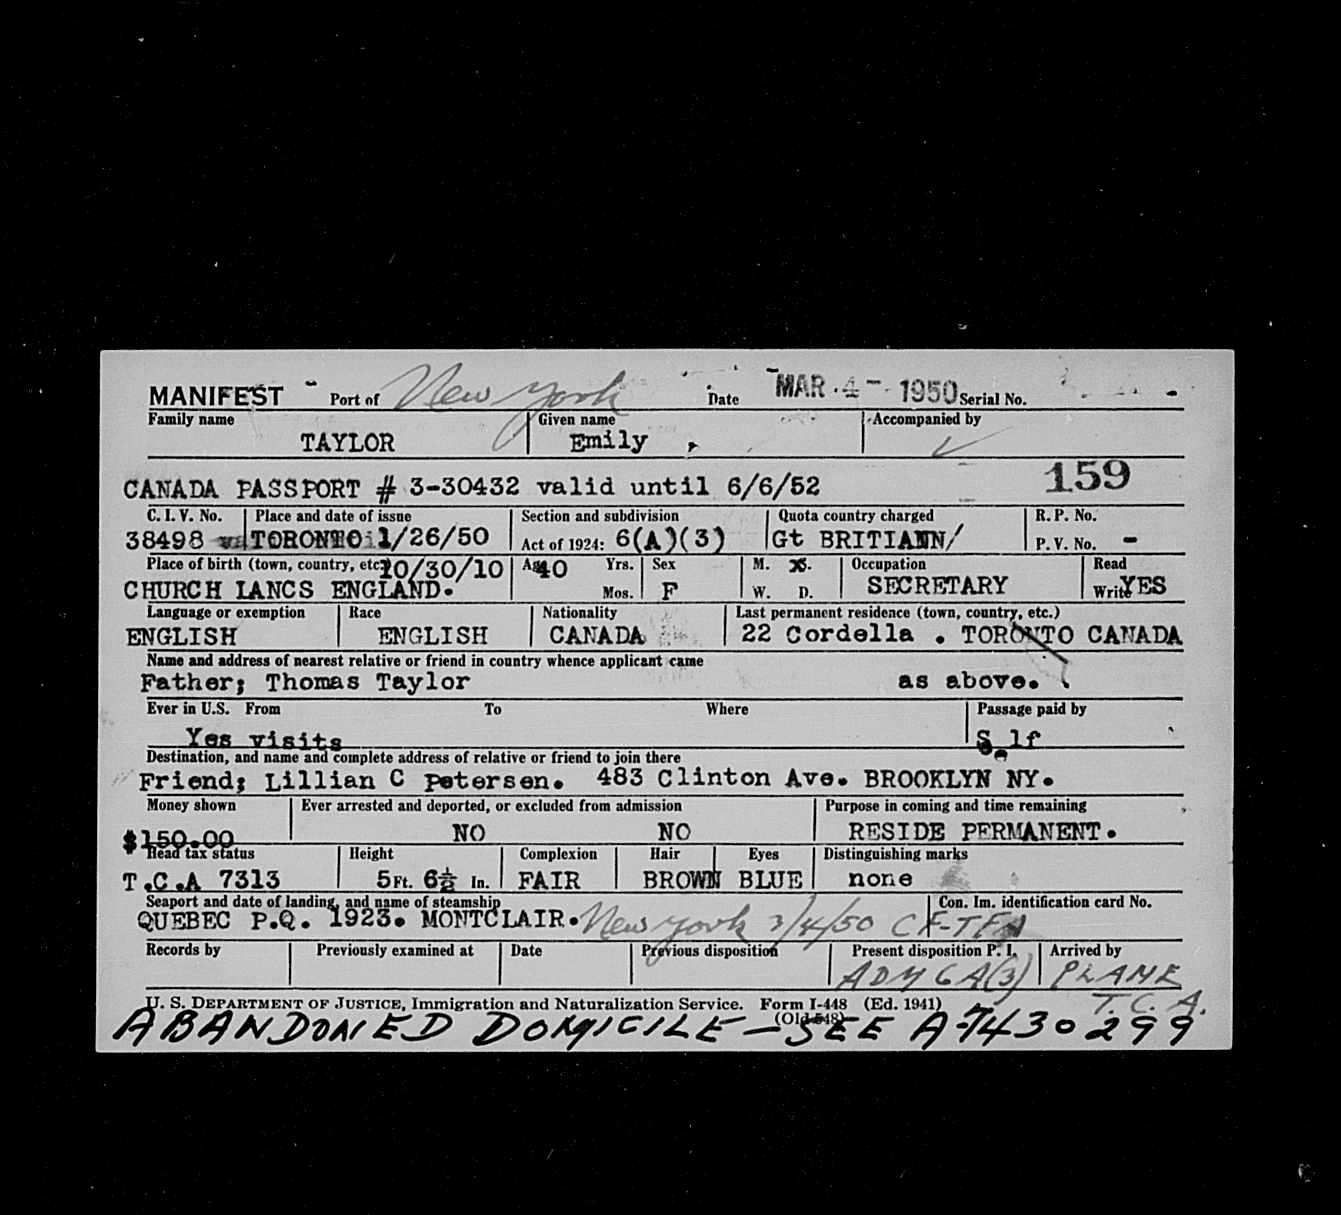 MANIFEST Port of New York Date MAR - 4 - 1950 Serial No. -
Family name Given name Accompanied by
TAYLOR Emily ,
CANADA PASSPORT # 3-30432 valid until 6/6/52 159
C. I. V. No. Place and date of issue Section and subdivision Quota country charged R. P. No.
38498 TORONTO 1/26/50 Act of 1924: 6(A)(3) Gt BRITIANN/ P. V. No. -
Place of birth (town, country, etc.) 10/30/10 Age 40 Yrs. Sex M. S. Occupation Read
CHURCH LANCS ENGLAND. Mos. F W. D. SECRETARY Write YES
Language or exemption Race Nationality Last permanent residence (town, country, etc.)
ENGLISH ENGLISH CANADA 22 Cordella . TORONTO CANADA
Name and address of nearest relative or friend in country whence applicant came
Father; Thomas Taylor as above.
Ever in U.S. From To Where Passage paid by
Yes visits Self
Destination, and name and complete address of relative or friend to join there
Friend; Lillian C Petersen. 483 Clinton Ave. BROOKLYN NY.
Money shown Ever arrested and deported, or excluded from admission Purpose in coming and time remaining
$150.00 NO NO RESIDE PERMANENT.
Head tax status Height Complexion Hair Eyes Distinguishing marks
T.C.A 7313 5 Ft. 6½ In. FAIR BROWN BLUE none
Seaport and date of landing, and name of steamship Con. Im. identification card No.
QUEBEC P.Q. 1923. MONTCLAIR. New York 3/4/50 CF-TFA
Records by Previously examined at Date Previous disposition Present disposition P. I. Arrived by
ADM 6A(3) PLANE
U. S. DEPARTMENT OF JUSTICE, Immigration and Naturalization Service. Form I-448 (Ed. 1941) T.C.A.
(Old 548)
ABANDONED DOMICILE - SEE A-7430299